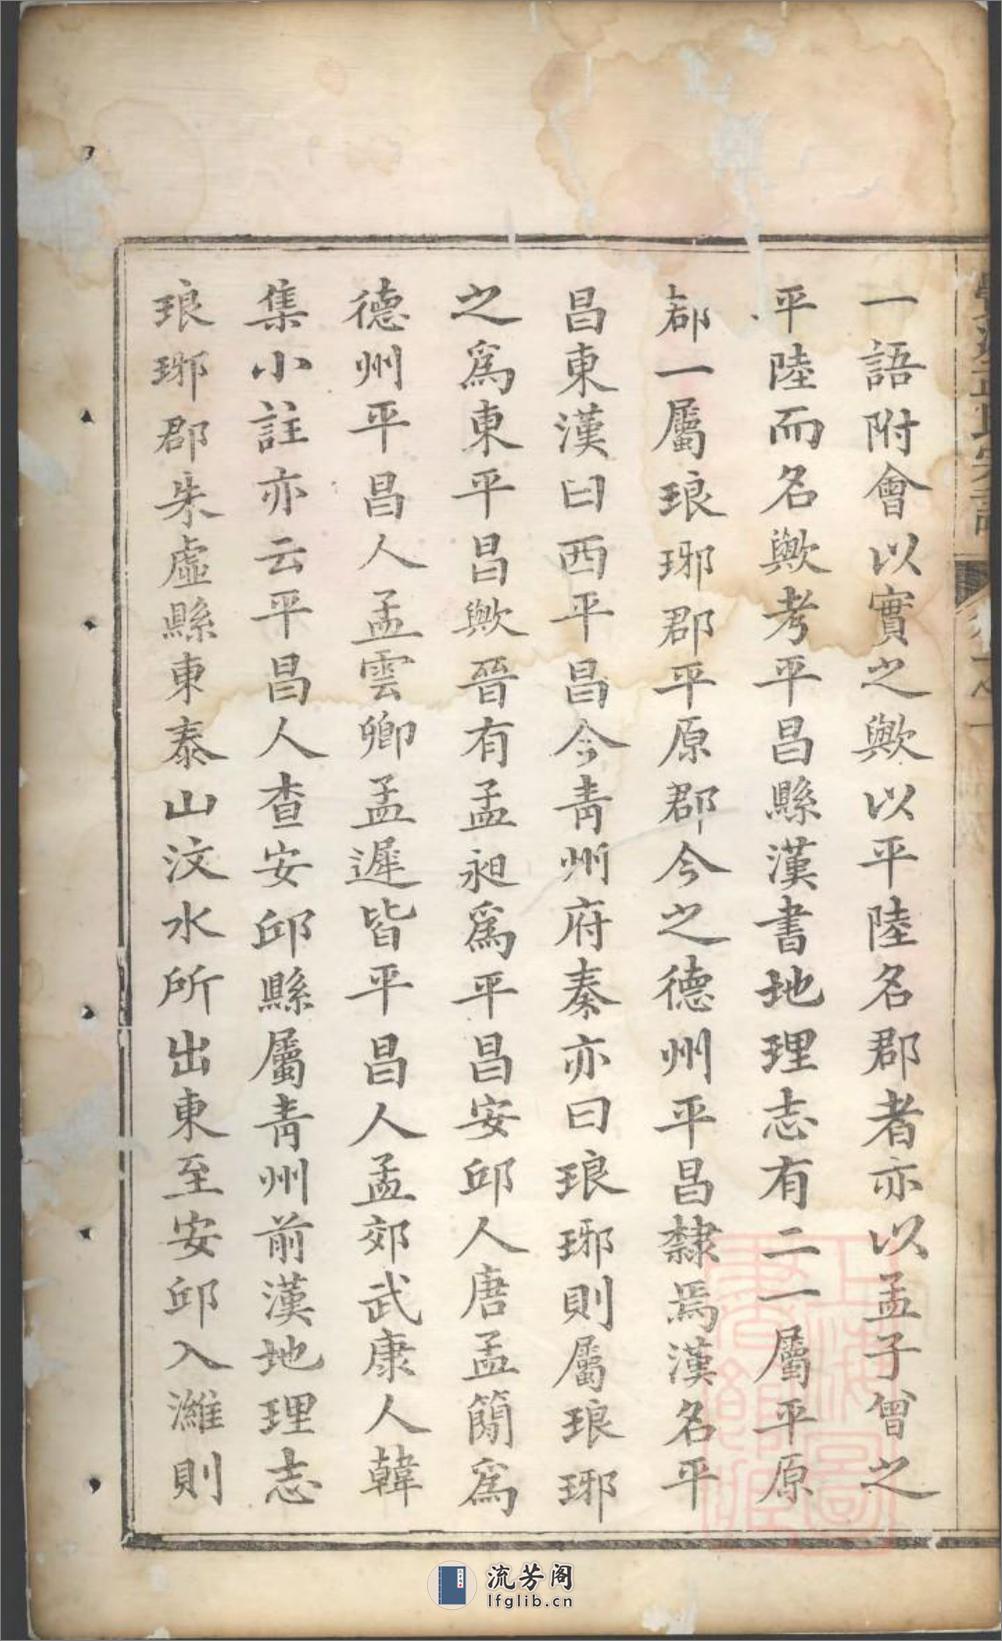 一語附會以實之歟以平陸名郡者亦以孟子曾之
平陸而名歟考平昌縣漢書地理志有二一屬平原
郡一屬琅琊郡平原郡今之德州平昌隸焉漢名平
昌東漢曰西平昌今青州府秦亦曰琅琊則屬琅琊
之為東平昌歟晉有孟昶為平昌安邱人唐孟簡為
德州平昌人孟雲卿孟遲皆平昌人孟郊武康人韓
集小註亦云平昌人查安邱縣屬青州前漢地理志
琅琊郡朱虛縣東泰山汶水所出東至安邱入濰則
上海圖書館藏
流芳阁
lfglib.cn